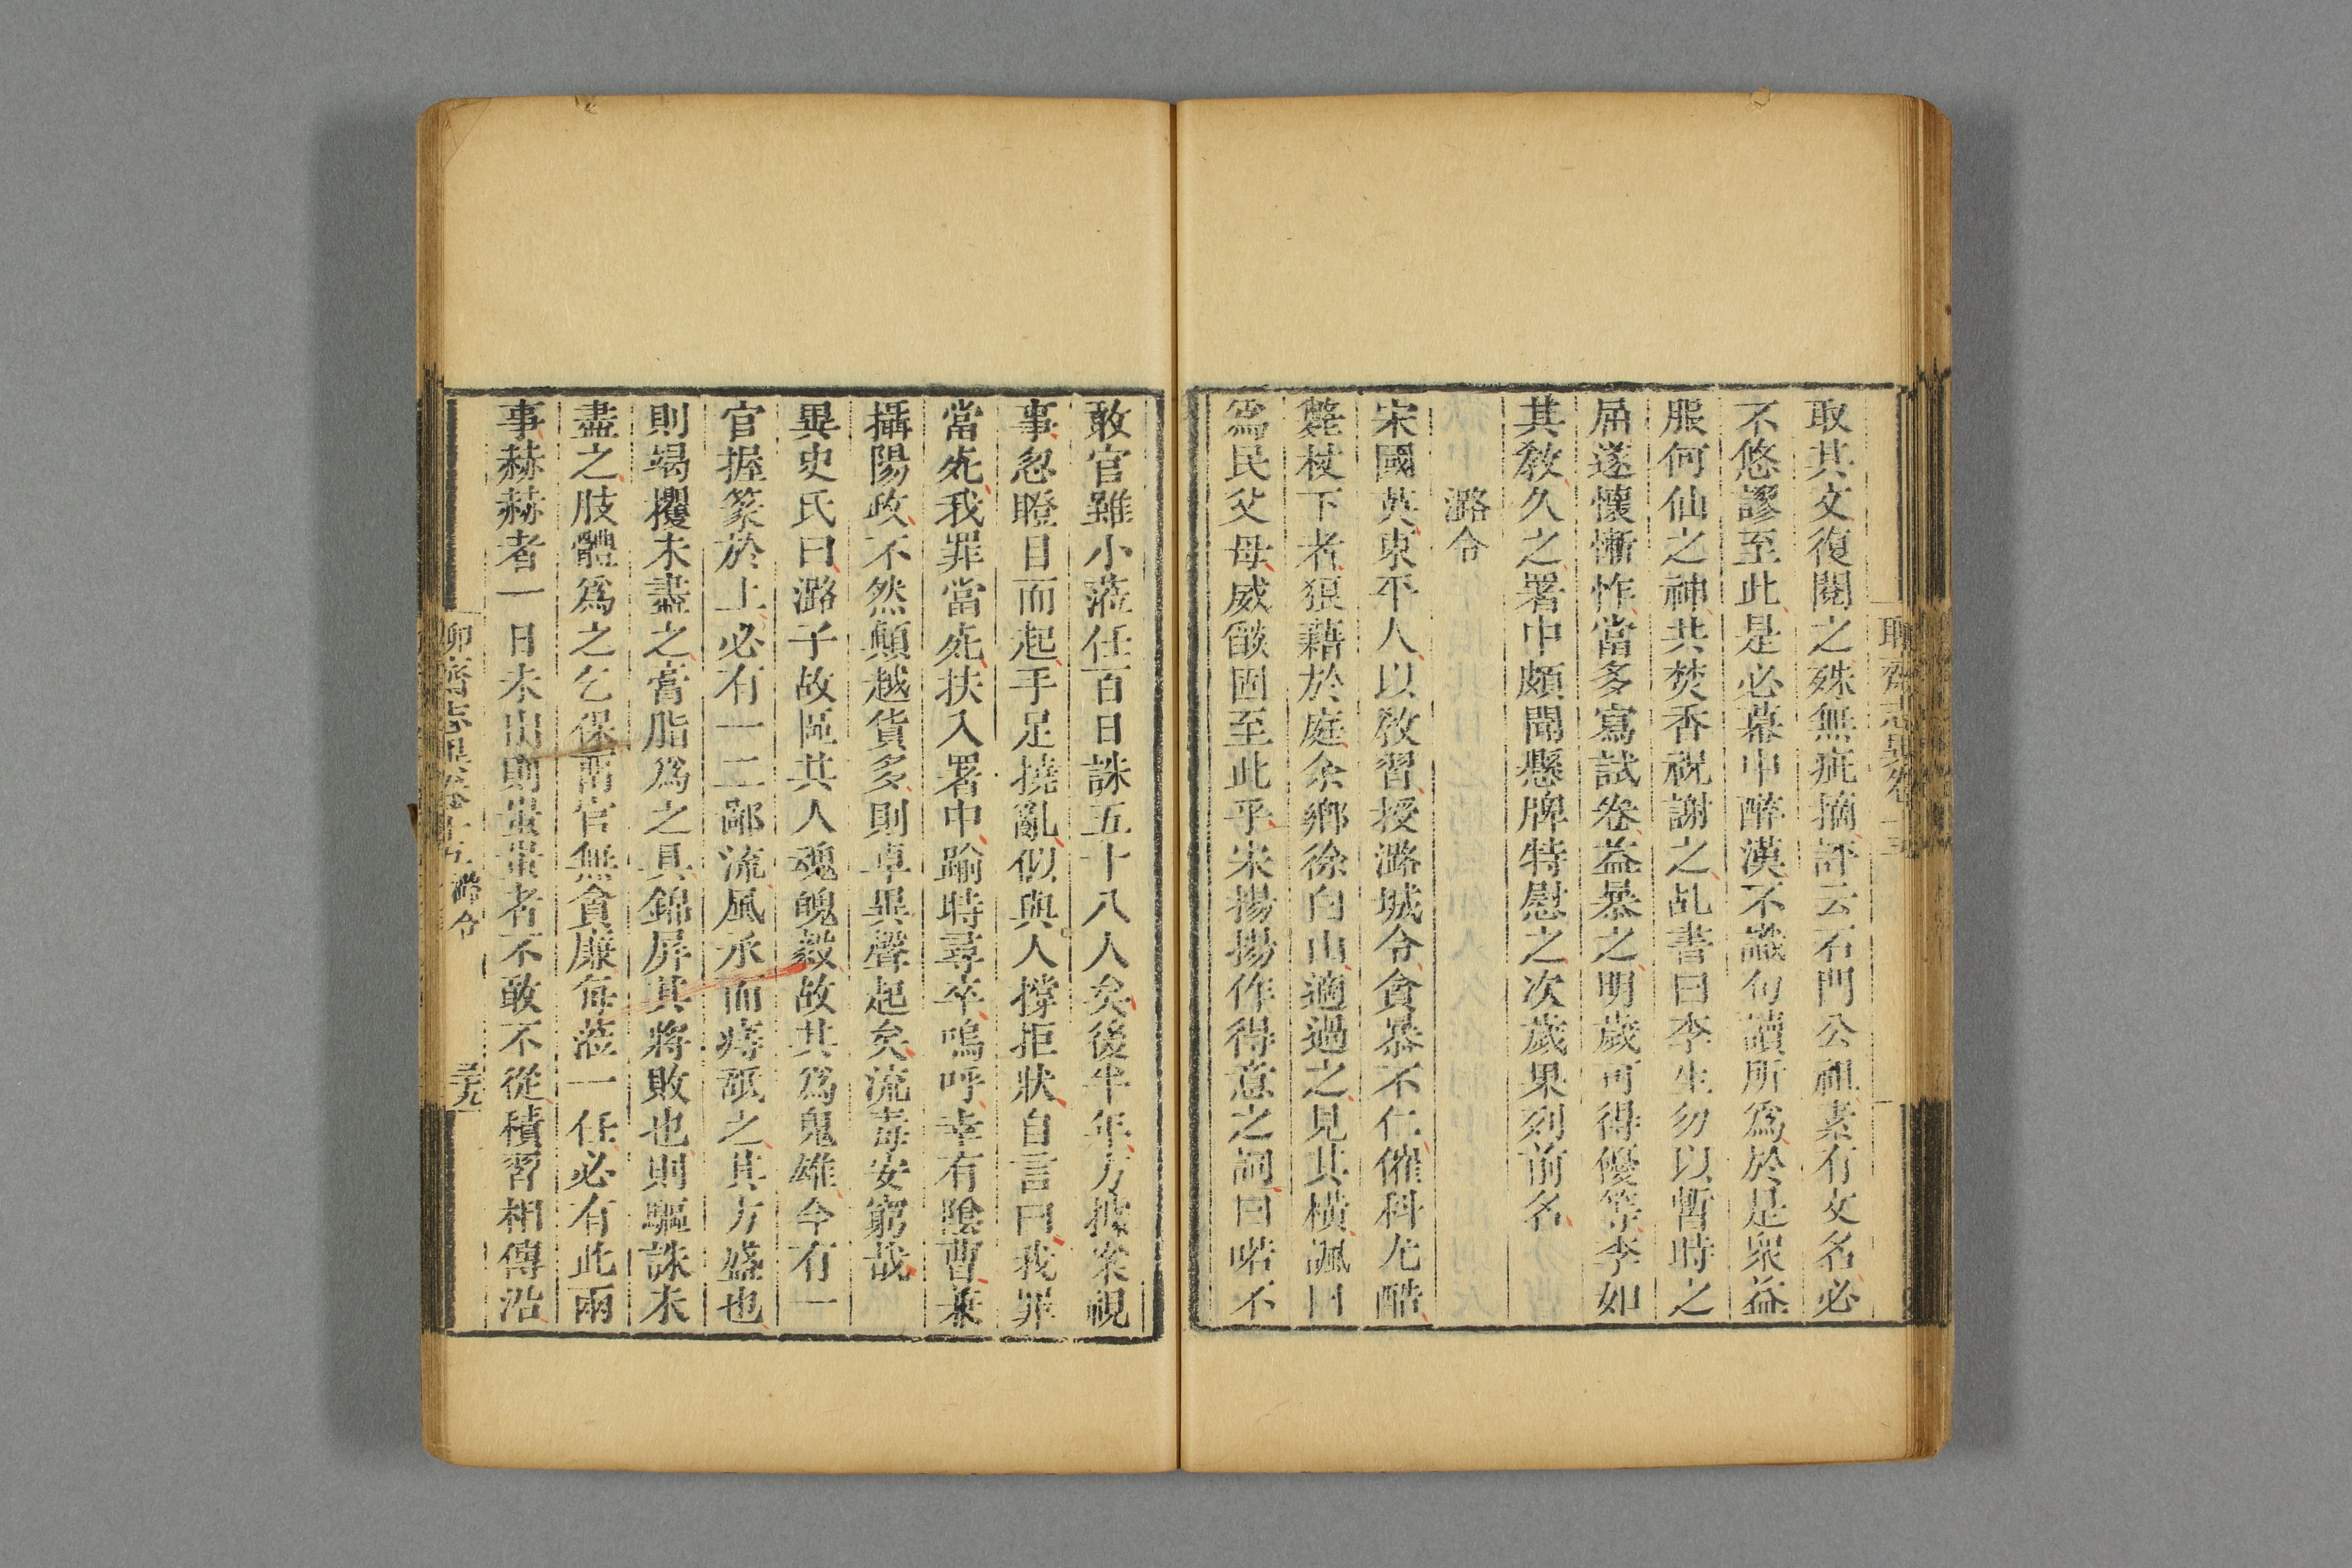 聊齋志異卷十五
取其文復閱之殊無疵摘評云石門公祖素有文名必
不悠謬至此是必幕中醉漢不識句讀所爲於是眾益
服何仙之神共焚香祝謝之乩書曰李生勿以暫時之
屈遂懷慚怍當多寫試卷益暴之明歲可得優等李如
其敎久之署中頗聞懸牌特慰之次歲果列前名
潞令
宋國英東平人以敎習授潞城令貪暴不仁催科尤酷
斃杖下者狼藉於庭余鄉徐白山適過之見其橫諷曰
爲民父母威燄固至此乎宋揚揚作得意之詞曰喏不
敢官雖小蒞任百日誅五十八人矣後半年方據案視
事忽瞪目而起手足撓亂似與人撐拒狀自言曰我罪
當死我罪當死扶入署中踰時尋卒嗚呼幸有陰曹兼
攝陽政不然顛越貨多則卓異聲起矣流毒安窮哉
異史氏曰潞子故區其人魂魄毅故其爲鬼雄今有一
官握篆於上必有一二鄙流風承而痔舐之其方盛也
則竭攫未盡之膏脂爲之具錦屏其將敗也則驅誅未
盡之肢體爲之乞保畱官無貪廉每蒞一任必有此兩
事赫赫者一日未出則蚩蚩者不敢不從積習相傳沿
聊齋志異卷十五 潞令 三九